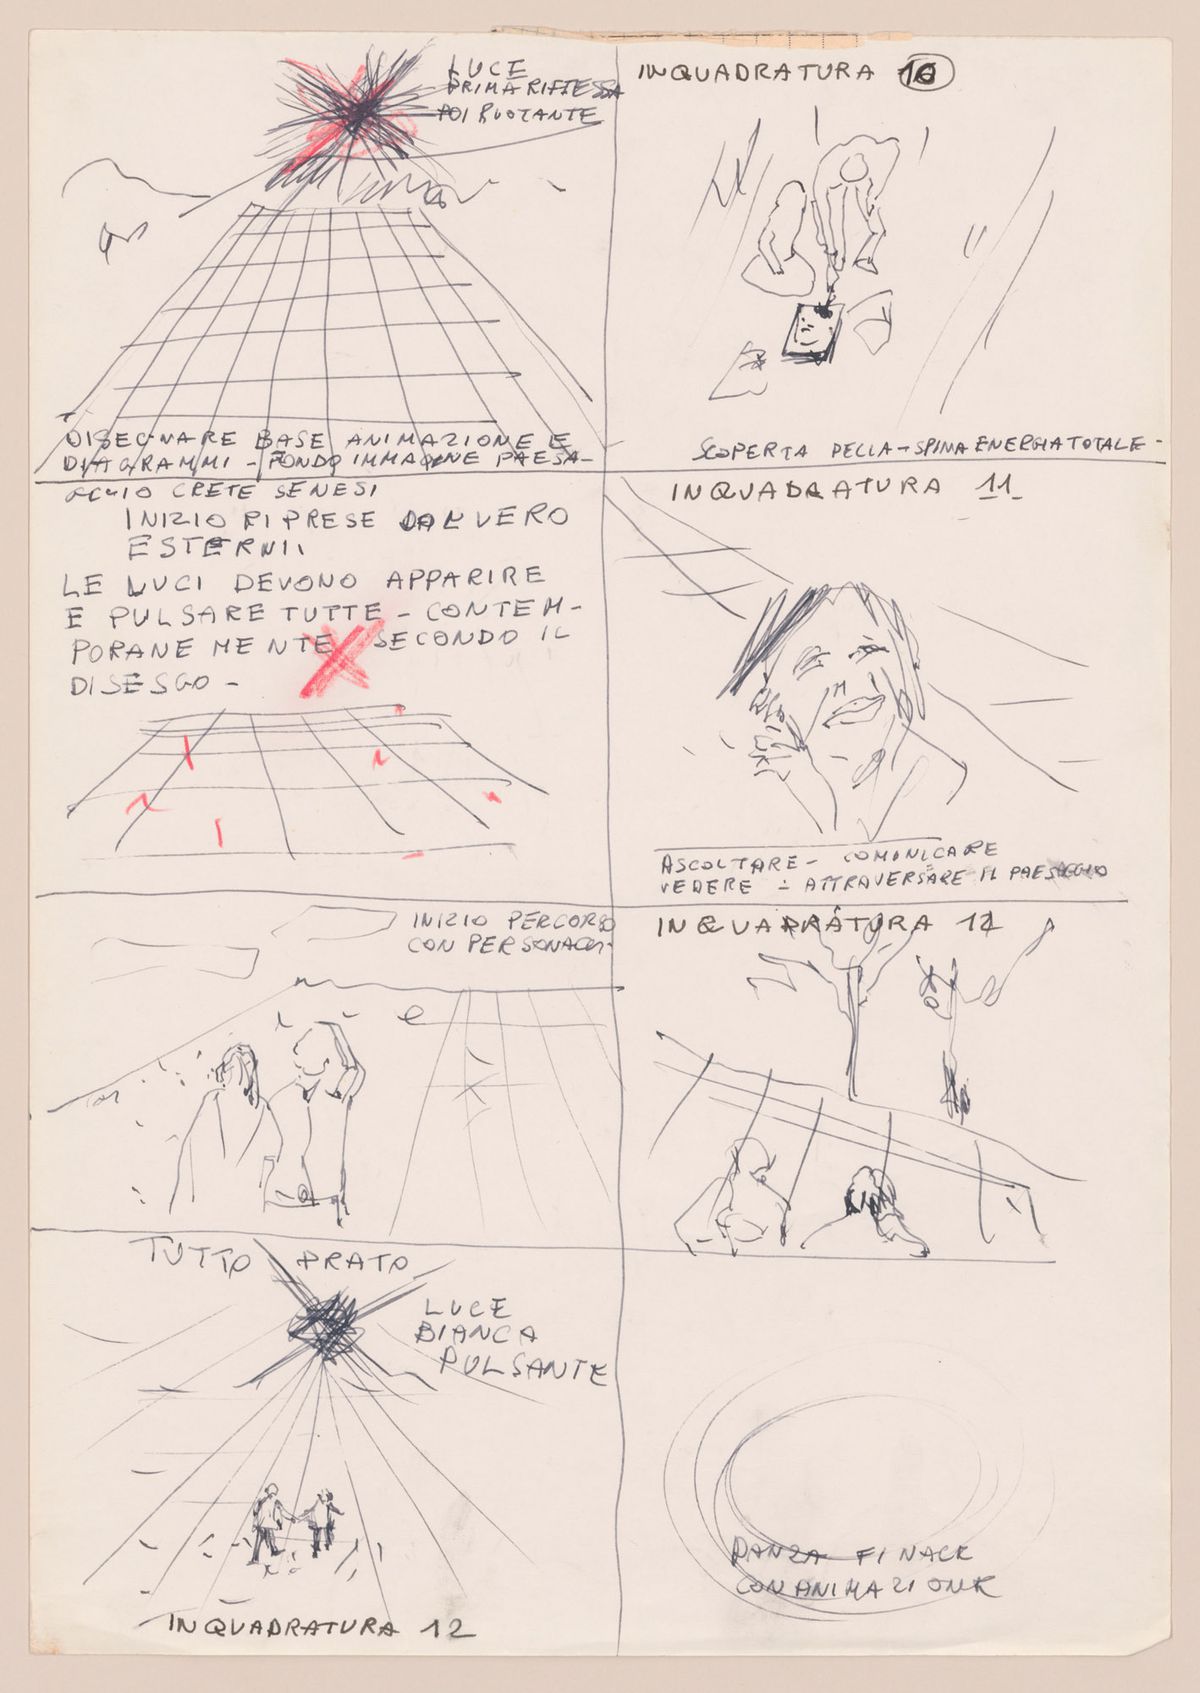 LUCE
PRIMA RIFLESSA
POI RUOTANTE
DISEGNARE BASE ANIMAZIONE E
DIAGRAMMI - FONDO IMMAGINE PAESA-
GGIO CRETE SENESI
INIZIO RIPRESE DAL VERO
ESTERNI
LE LUCI DEVONO APPARIRE
E PULSARE TUTTE - CONTEM-
PORANEMENTE SECONDO IL
DISESGO -
INIZIO PERCORSO
CON PERSONAGGI
TUTTO PRATO
LUCE
BIANCA
PULSANTE
INQUADRATURA 12
INQUADRATURA 10
SCOPERTA DELLA - SPINA ENERGIA TOTALE -
INQUADRATURA 11
ASCOLTARE - COMUNICARE
VEDERE - ATTRAVERSARE IL PAESAGGIO
INQUADRATURA 12
DANZA FINALE
CON ANIMAZIONE